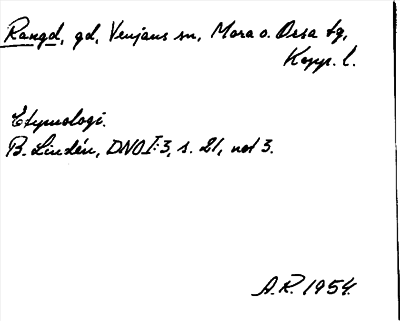 Rangd, gd, Venjans sn, Mora o. Orsa tg,
Kopp. l.
Etymologi.
B. Lindén, DNOI:3, s. 21, not 3.
A.R. 1954.